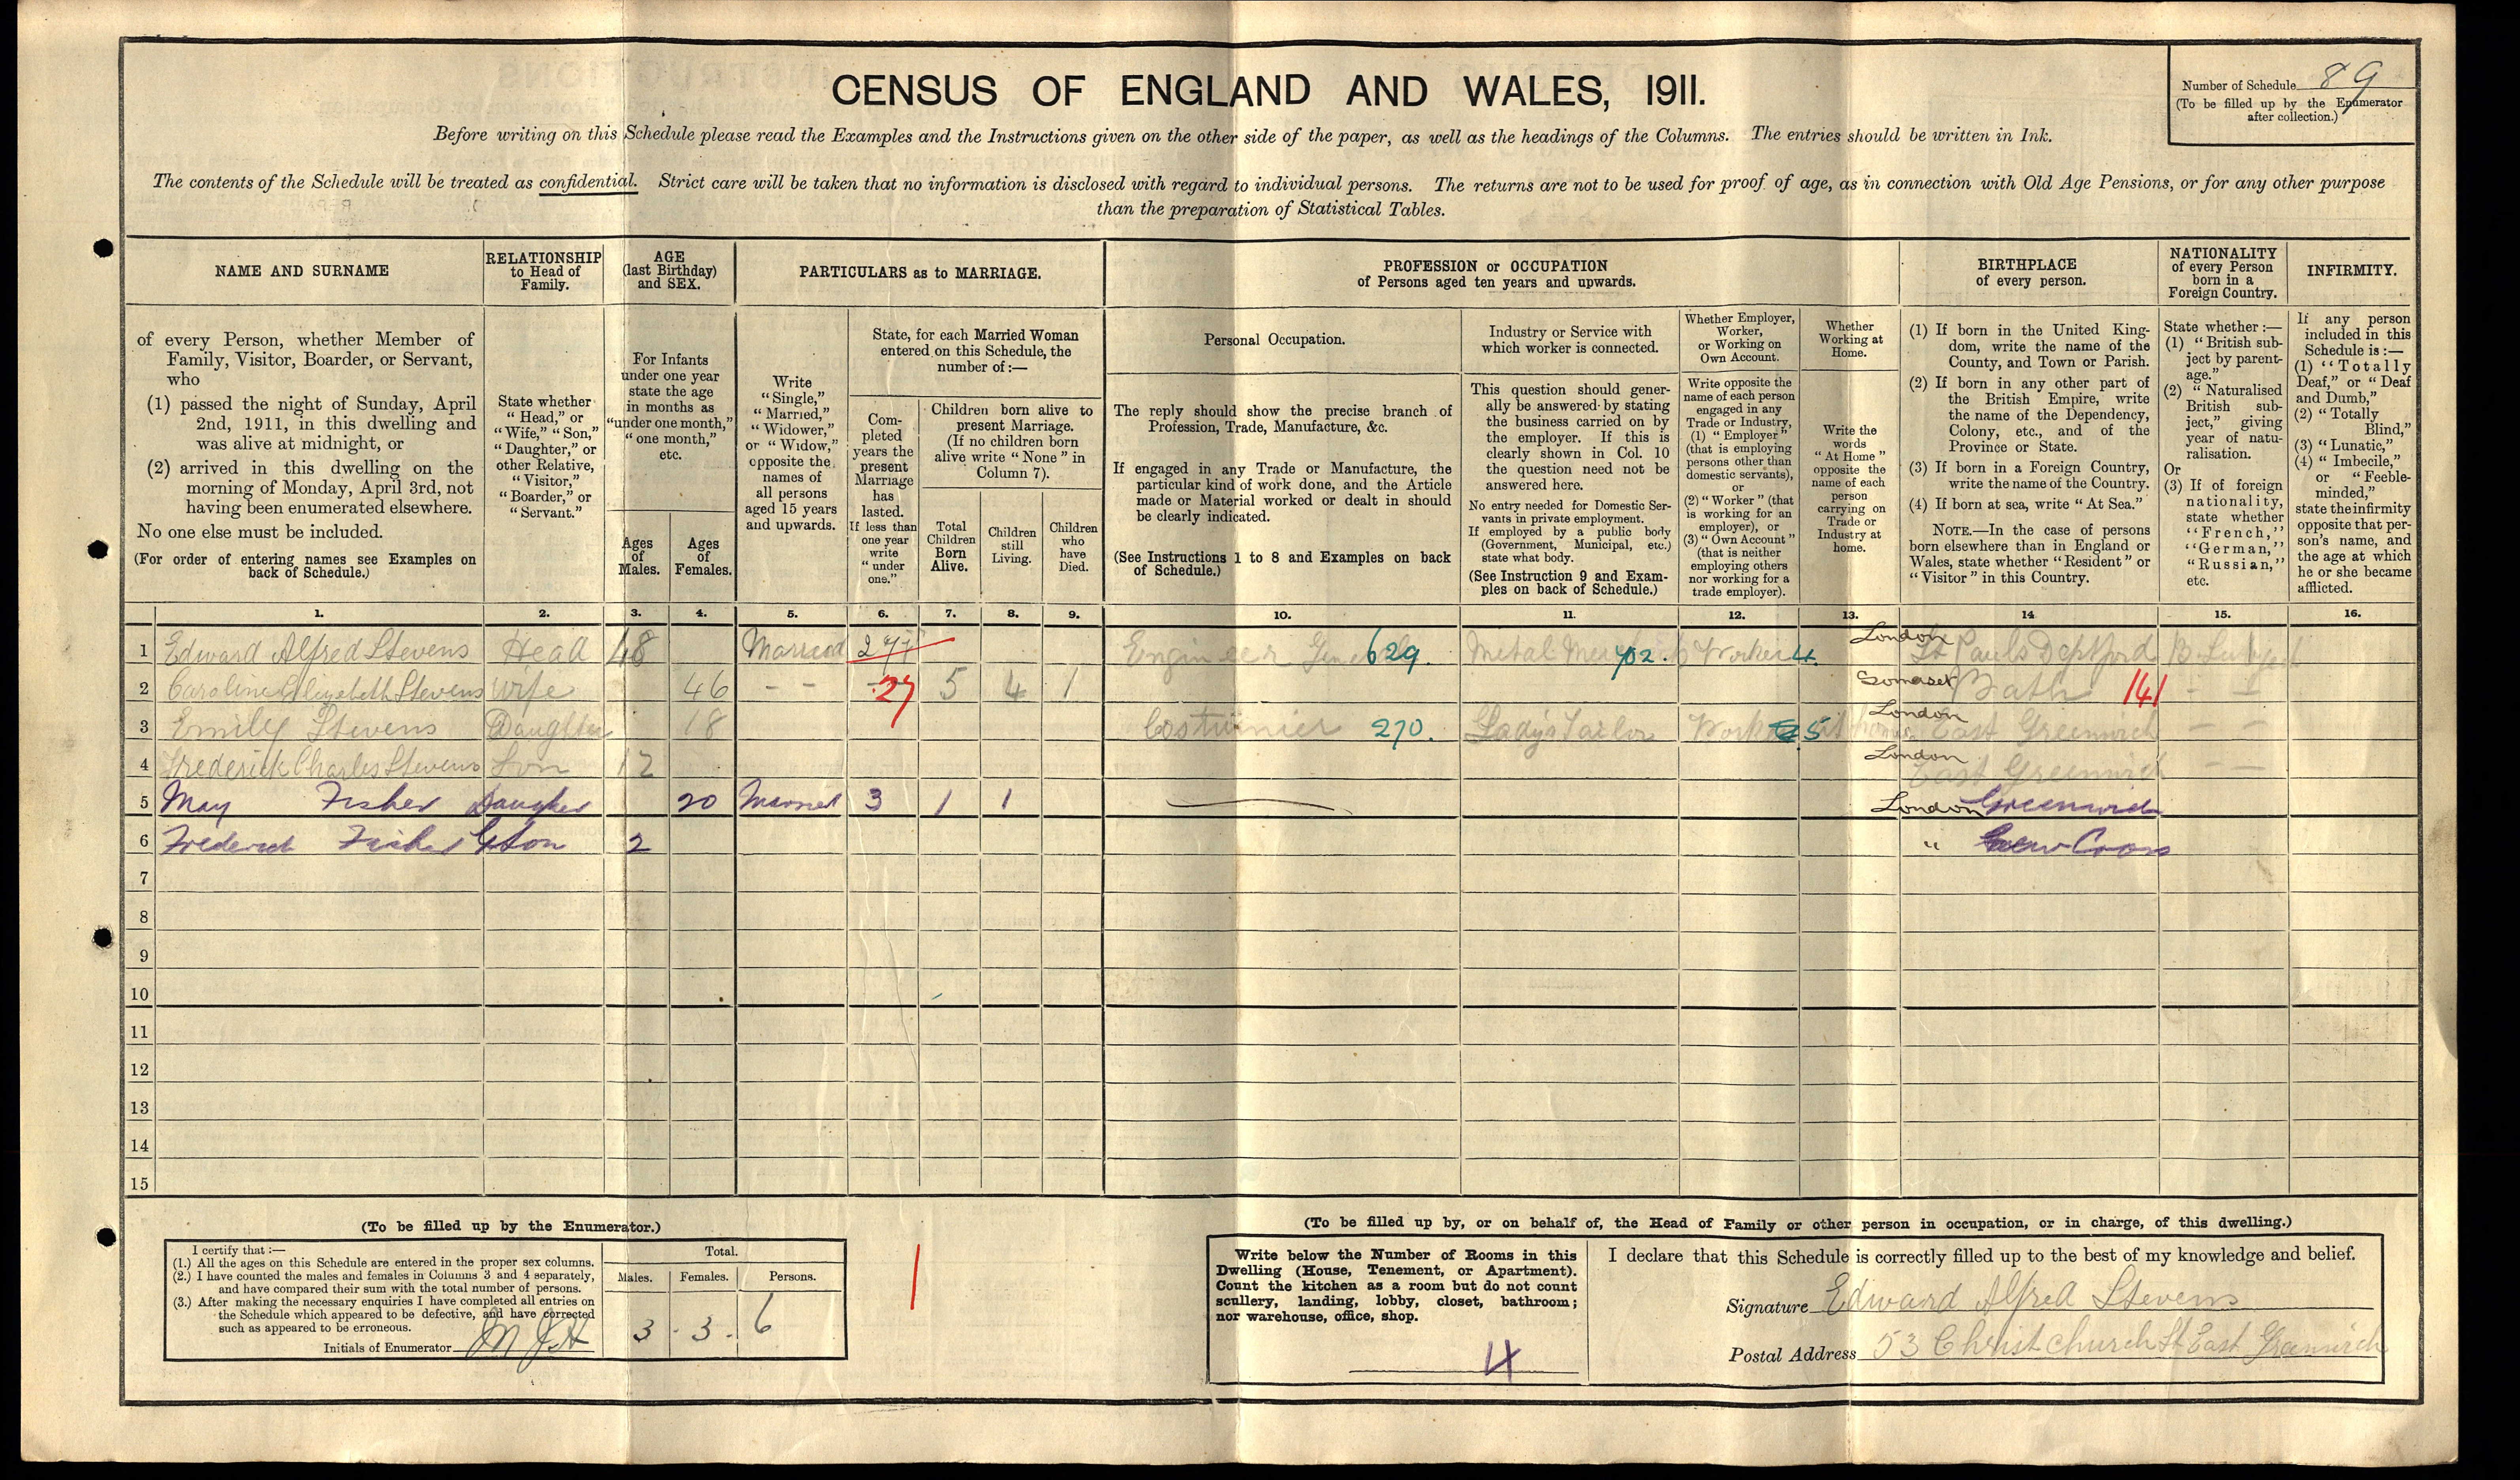 CENSUS OF ENGLAND AND WALES, 1911.
Number of Schedule 89
(To be filled up by the Enumerator
after collection.)
Before writing on this Schedule please read the Examples and the Instructions given on the other side of the paper, as well as the headings of the Columns. The entries should be written in Ink.
The contents of the Schedule will be treated as confidential. Strict care will be taken that no information is disclosed with regard to individual persons. The returns are not to be used for proof of age, as in connection with Old Age Pensions, or for any other purpose
than the preparation of Statistical Tables.
NAME AND SURNAME
of every Person, whether Member of
Family, Visitor, Boarder, or Servant,
who
(1) passed the night of Sunday, April
2nd, 1911, in this dwelling and
was alive at midnight, or
(2) arrived in this dwelling on the
morning of Monday, April 3rd, not
having been enumerated elsewhere.
No one else must be included.
(For order of entering names see Examples on
back of Schedule.)
RELATIONSHIP
to Head of
Family.
State whether
"Head," or
"Wife," "Son,"
"Daughter," or
other Relative,
"Visitor,"
"Boarder," or
"Servant."
AGE
(last Birthday)
and SEX.
For Infants
under one year
state the age
in months as
"under one month,"
"one month,"
etc.
Ages
of
Males.
Ages
of
Females.
PARTICULARS as to MARRIAGE.
Write
"Single,"
"Married,"
"Widower,"
or "Widow,"
opposite the
names of
all persons
aged 15 years
and upwards.
State, for each Married Woman
entered on this Schedule, the
number of:—
Com-
pleted
years the
present
Marriage
has
lasted.
If less than
one year
write
"under
one."
Children born alive to
present Marriage.
(If no children born
alive write "None" in
Column 7).
Total
Children
Born
Alive.
Children
still
Living.
Children
who
have
Died.
PROFESSION or OCCUPATION
of Persons aged ten years and upwards.
Personal Occupation.
The reply should show the precise branch of
Profession, Trade, Manufacture, &c.
If engaged in any Trade or Manufacture, the
particular kind of work done, and the Article
made or Material worked or dealt in should
be clearly indicated.
(See Instructions 1 to 8 and Examples on back
of Schedule.)
Industry or Service with
which worker is connected.
This question should gener-
ally be answered by stating
the business carried on by
the employer. If this is
clearly shown in Col. 10
the question need not be
answered here.
No entry needed for Domestic Ser-
vants in private employment.
If employed by a public body
(Government, Municipal, etc.)
state what body.
(See Instruction 9 and Exam-
ples on back of Schedule.)
Whether Employer,
Worker,
or Working on
Own Account.
Write opposite the
name of each person
engaged in any
Trade or Industry,
(1) "Employer"
(that is employing
persons other than
domestic servants),
or
(2) "Worker" (that
is working for an
employer), or
(3) "Own Account"
(that is neither
employing others
nor working for a
trade employer).
Whether
Working at
Home.
Write the
words
"At Home"
opposite the
name of each
person
carrying on
Trade or
Industry at
home.
BIRTHPLACE
of every person.
(1) If born in the United King-
dom, write the name of the
County, and Town or Parish.
(2) If born in any other part of
the British Empire, write
the name of the Dependency,
Colony, etc., and of the
Province or State.
(3) If born in a Foreign Country,
write the name of the Country.
(4) If born at sea, write "At Sea."
NOTE.—In the case of persons
born elsewhere than in England or
Wales, state whether "Resident" or
"Visitor" in this Country.
NATIONALITY
of every Person
born in a
Foreign Country.
State whether:—
(1) "British sub-
ject by parent-
age."
(2) "Naturalised
British sub-
ject," giving
year of natu-
ralisation.
Or
(3) If of foreign
nationality,
state whether
"French,"
"German,"
"Russian,"
etc.
INFIRMITY.
If any person
included in this
Schedule is:—
(1) "Totally
Deaf," or "Deaf
and Dumb,"
(2) "Totally
Blind,"
(3) "Lunatic,"
(4) "Imbecile,"
or "Feeble-
minded,"
state the infirmity
opposite that per-
son's name, and
the age at which
he or she became
afflicted.
1. 2. 3. 4. 5. 6. 7. 8. 9. 10. 11. 12. 13. 14 15. 16.
1 Edward Alfred Stevens Head 48 Married 27 Engineer 629. Metal 702. Worker 4. London St Pauls Deptford
2 Caroline Elizebeth Stevens Wife 46 - - 27 5 4 1 Somerset Bath 141 - -
3 Emily Stevens Daughter 18 Costumier 270. Ladys Tailor Worker 5 London East Greenwich - -
4 Frederick Charles Stevens Son 12 London East Greenwich - -
5 May Fisher Daughter 20 Married 3 1 1 London Greenwich
6 Frederick Fisher G Son 2 " New Cross
7
8
9
10
11
12
13
14
15
(To be filled up by the Enumerator.)
I certify that:—
(1.) All the ages on this Schedule are entered in the proper sex columns.
(2.) I have counted the males and females in Columns 3 and 4 separately,
and have compared their sum with the total number of persons.
(3.) After making the necessary enquiries I have completed all entries on
the Schedule which appeared to be defective, and have corrected
such as appeared to be erroneous.
Initials of Enumerator
Total.
Males. Females. Persons.
3 - 3 - 6
(To be filled up by, or on behalf of, the Head of Family or other person in occupation, or in charge, of this dwelling.)
Write below the Number of Rooms in this
Dwelling (House, Tenement, or Apartment).
Count the kitchen as a room but do not count
scullery, landing, lobby, closet, bathroom;
nor warehouse, office, shop.
4
I declare that this Schedule is correctly filled up to the best of my knowledge and belief.
Signature Edward Alfred Stevens
Postal Address 53 Christchurch St East Greenwich